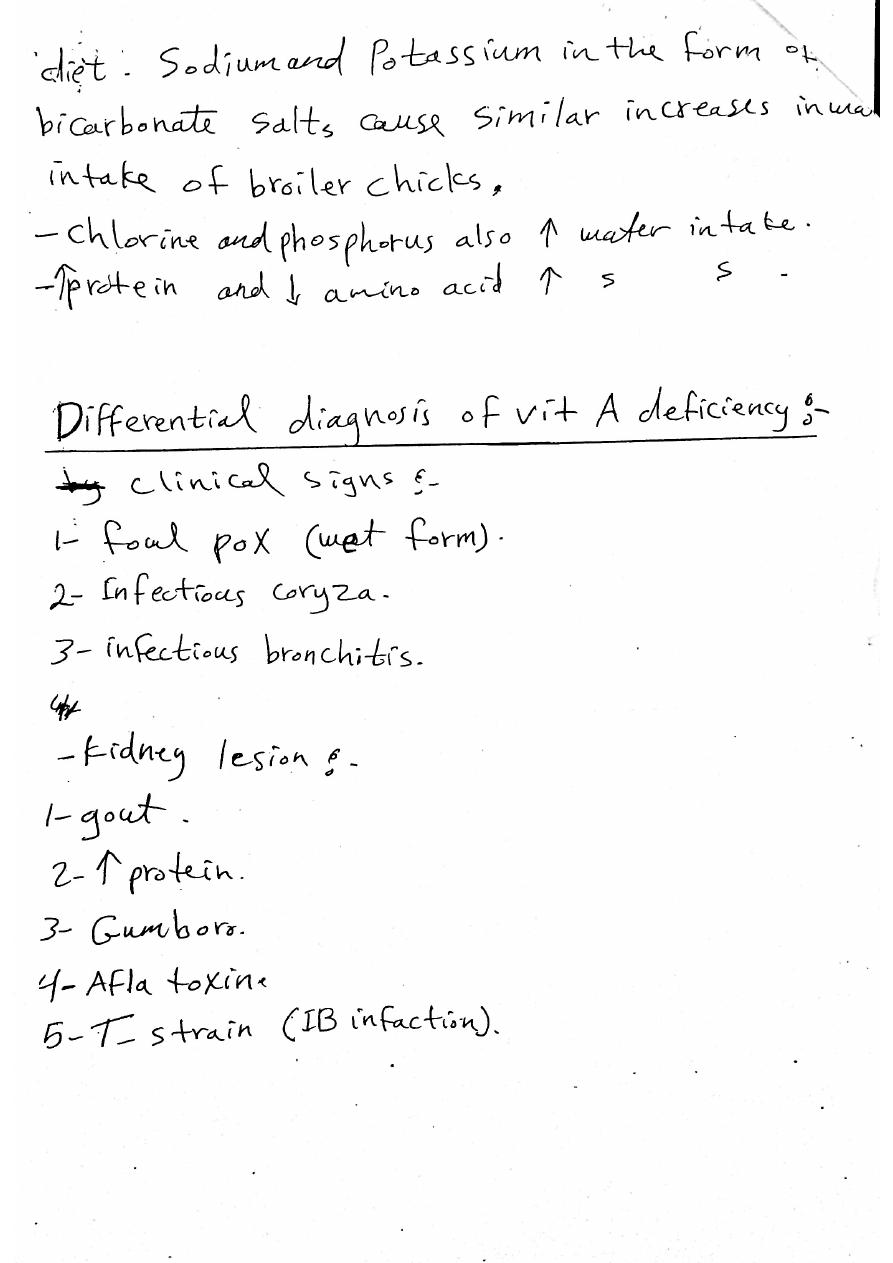 diet. Sodium and Potassium in the form of
bicarbonate salts cause similar increases in wa
intake of broiler chicks.
- Chlorine and phosphorus also ↑ water intake.
- ↑protein and ↓ amino acid ↑ s s -
Differential diagnosis of vit A deficiency :-
clinical signs :-
1- foul pox (wet form).
2- Infectious coryza.
3- infectious bronchitis.
- kidney lesion :-
1- gout.
2- ↑ protein.
3- Gumboro.
4- Afla toxin.
5- T- strain (IB infaction).